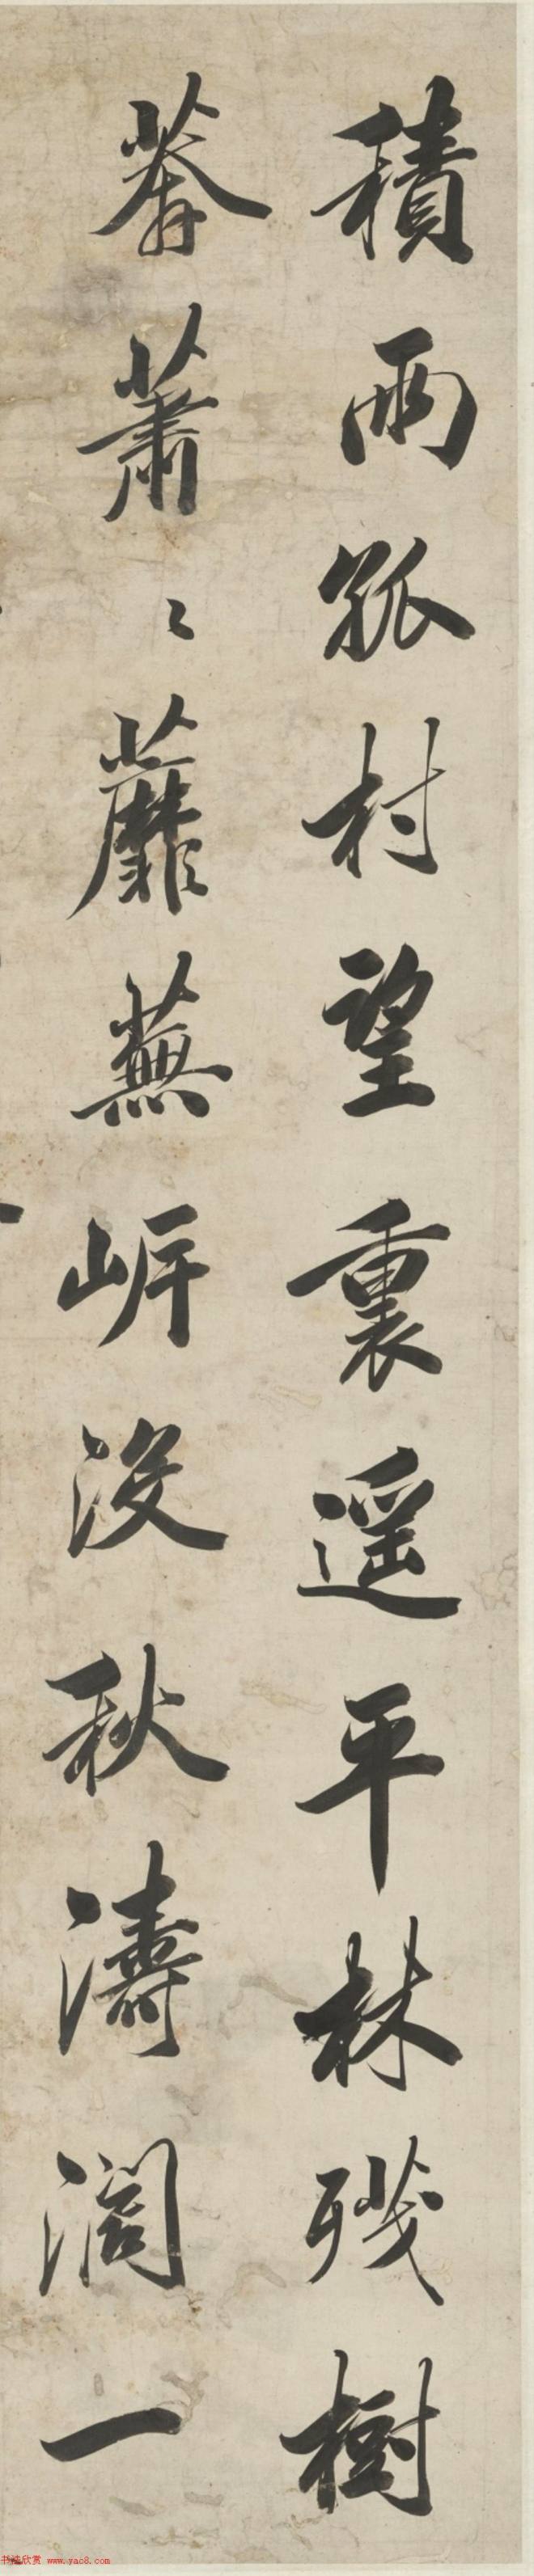 積雨孤村望裏遥平林残樹
莽蕭〻蘼蕪岸没秋濤濶一
书法欣赏 www.yac8.com